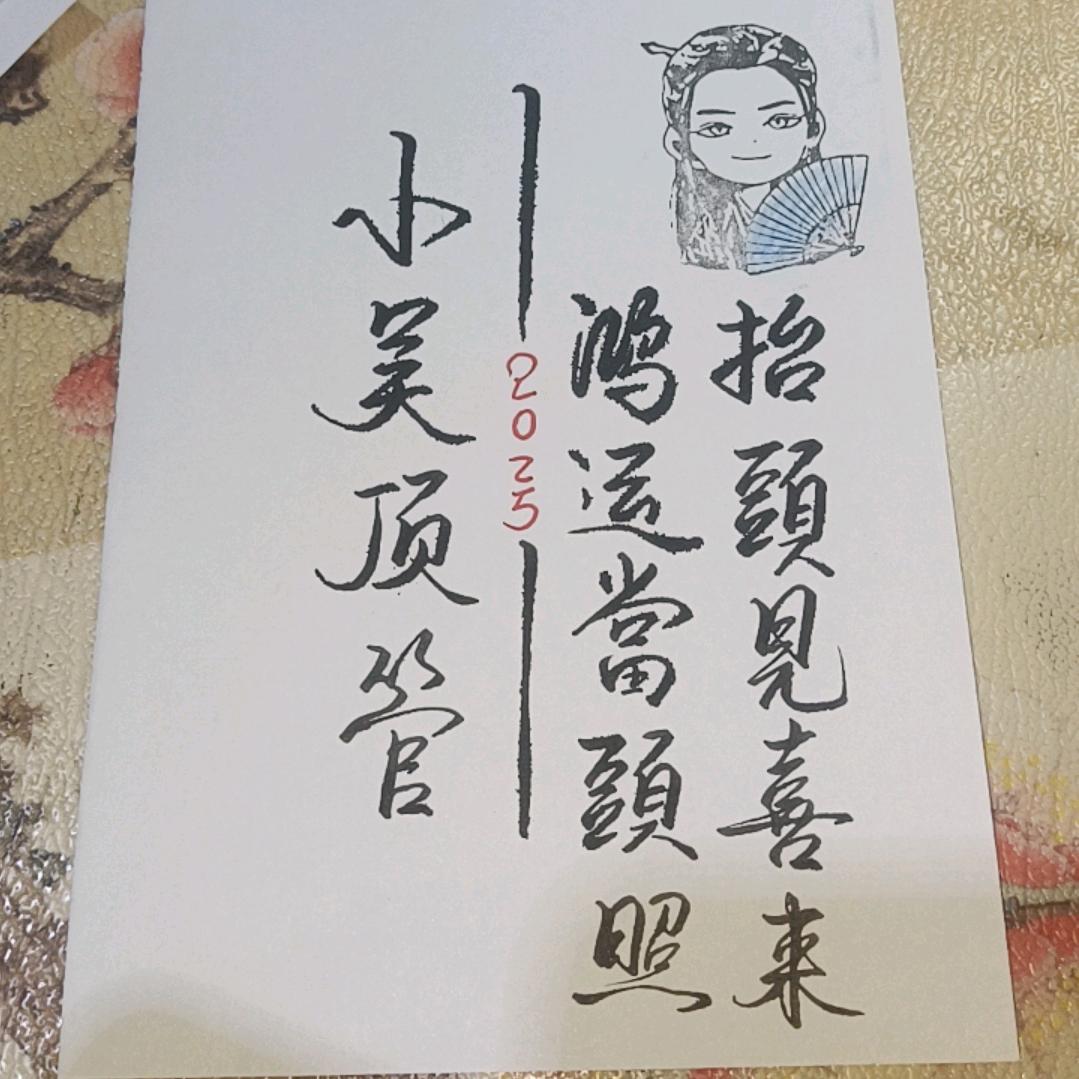 抬頭見喜來
鴻運當頭照
2025
小美顶管